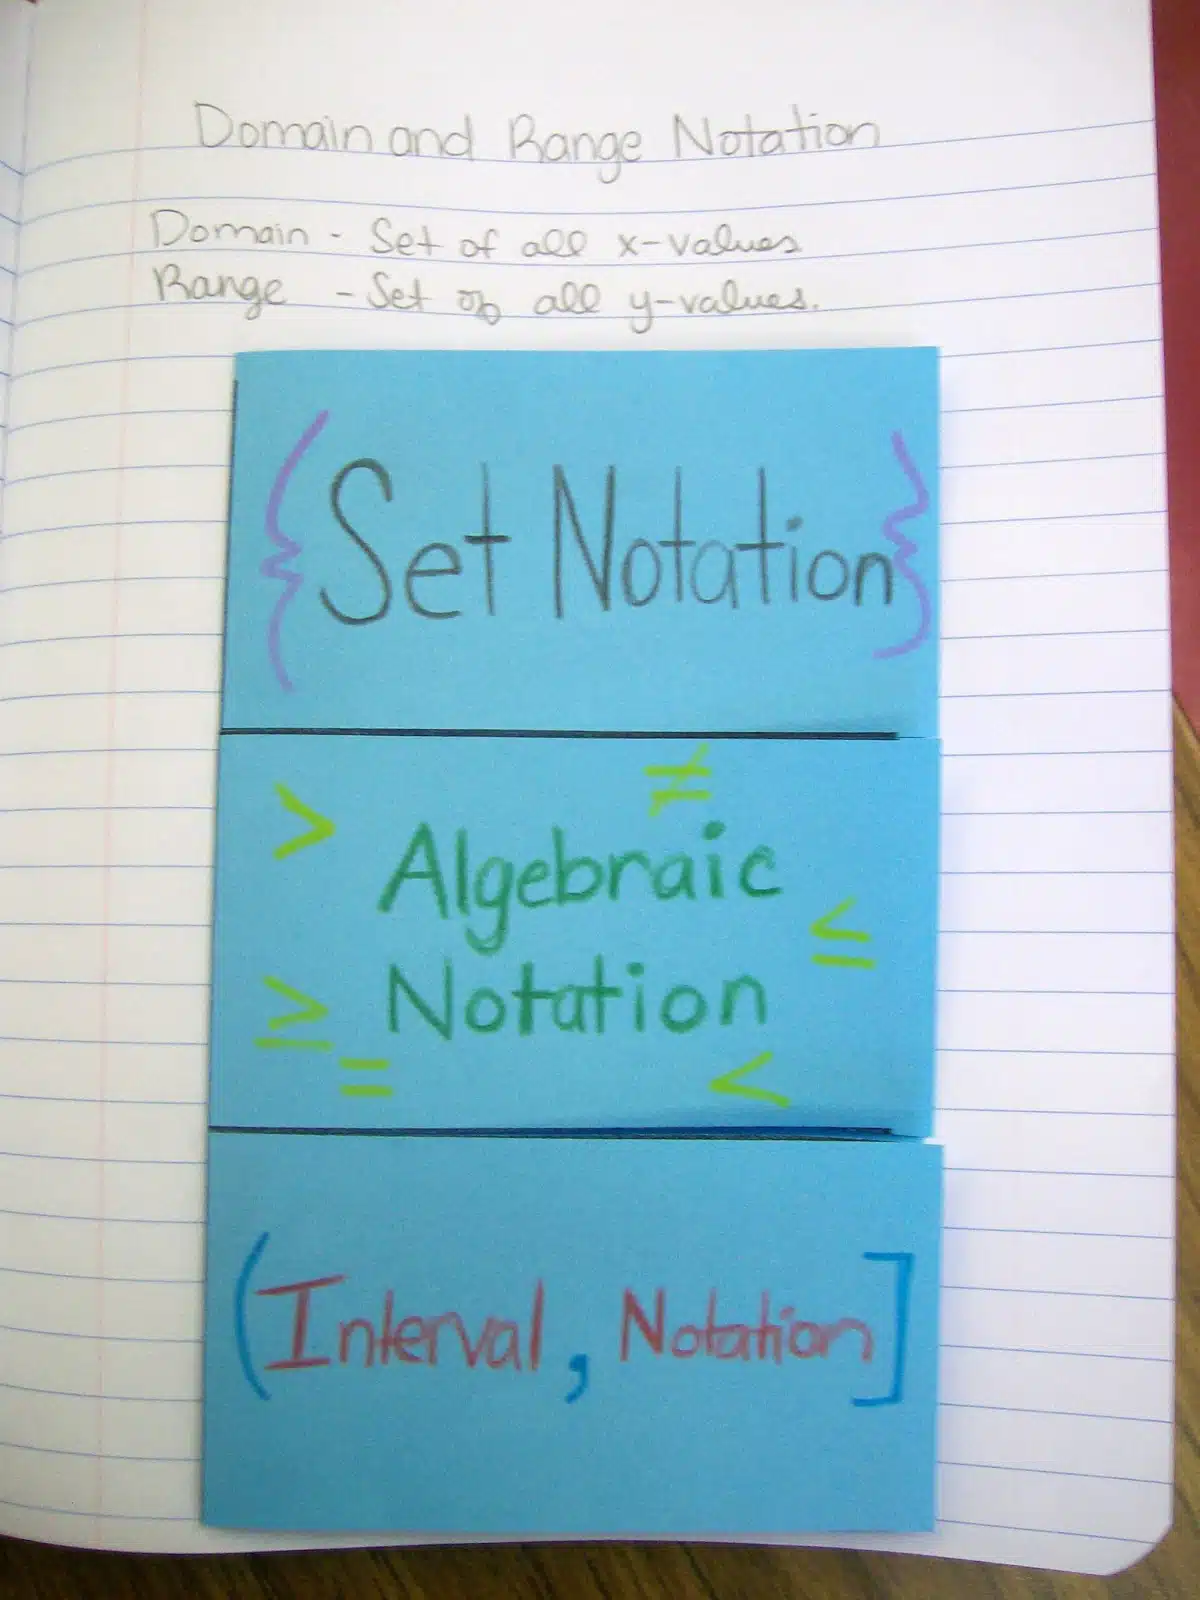 Domain and Range Notation
Domain - Set of all x-values
Range - Set of all y-values.
{Set Notation}
> ≠
Algebraic
≤
Notation
≥
= <
(Interval, Notation]